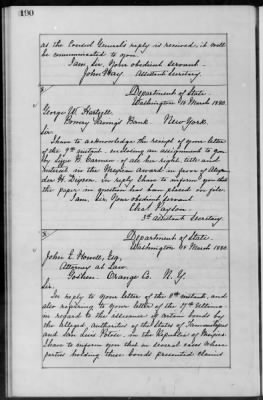 190
as the Consul General's reply is received, it will
be communicated to you.
I am, Sir, Your obedient servant
John Hay Assistant Secretary.
Department of State
Washington 10 March 1880.
George W.
Bowery Savings Bank New York.
Sir.
I have to acknowledge the receipt of your letter
of the 9th instant, enclosing an assignment to you
by H. Carman of all her right, title and
interest in the Mexican Award in favor of
H. In reply I have to inform you that
the paper in question has been placed on file.
I am, Sir, Your obedient servant
Chas Payson
3d Assistant Secretary
Department of State
Washington March 1880
John E. Howell, Esq.
Attorney at Law
Goshen. Orange Co. N.Y.
Sir.
In reply to your letter of the 8th instant, and
also referring to your letter of the ultimo
in regard to the issuance of certain bonds by
the alleged authorities of the States of Tamaulipas
and San Luis Potosi, in the Republic of Mexico,
I have to inform you that in several cases where
parties holding these bonds presented claims